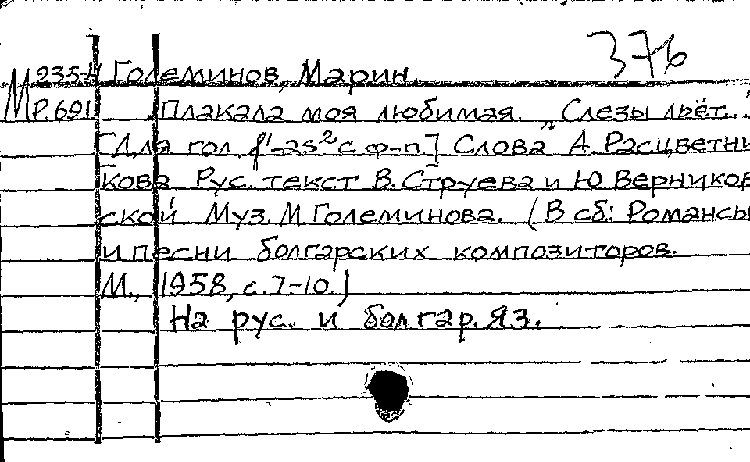 376
М 235-4 Големинов, Марин.
Р.691 Плакала моя любимая. „Слезы льёт..."
[Для гол. f¹-as² с ф-п.] Слова А. Расцветни
кова Рус. текст В. Струева и Ю Верников
ской Муз. М. Големинова. (В сб: Романсы
и песни болгарских композиторов.
М., 1958, с. 7-10.)
На рус. и болгар. яз.